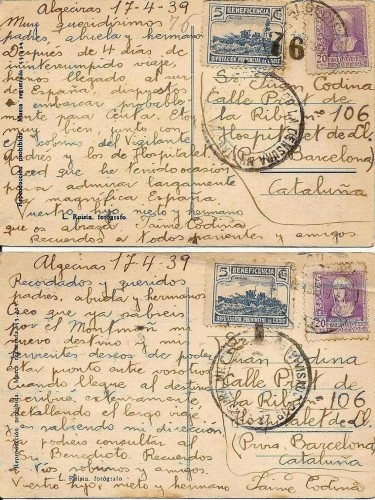 Algeciras 17-4-39
Muy queridisimos
padres, abuela y hermano
Después de 4 dias de
interrumpido viaje,
hemos llegado al sur
de España, dispuestos
embarcar probable
mente para Ceuta. Estoy
muy bien, junto con
el sobrino del Vigilante
Padres y los de Hospitalet
ed que he tenido ocasion
para admirar largamente
la magnifica España.
Vuestro hijo nieto y hermano
que os abraza Jaime Codina
Recuerdos a todos parientes y amigos
L. Roisin, fotógrafo.
Reproducción prohibida
5 BENEFICENCIA
DIPUTACION PROVINCIAL DE CADIZ
76
20
Sr. Juan Codina
Calle Prat de
la Riba nº 106
Hospitalet de Ll.
(P. Barcelona)
Cataluña
Algeciras 17-4-39
Recordados y queridos
padres, abuela y hermano
Creo que ya sabreis
por el Montmañ mi
nuevo destino y mis
fervientes deseos de poder
estar pronto entre vosotros
Cuando llegue al destino
escribiré enteramente
detallando el largo viaje
y no sabiendo mi dirección
podeis consultar al
Sr. Benedicto Recuerdos
tios sobrinos y amigos.
L. Roisin, fotógrafo.
Vuestro hijo, nieto y hermano
Jaime Codina
Reproducción prohibida
5 BENEFICENCIA
DIPUTACION PROVINCIAL DE CADIZ
20
Juan Codina
Calle Prat de
la Riba
nº 106
Hospitalet de Ll.
(Prov. Barcelona)
Cataluña